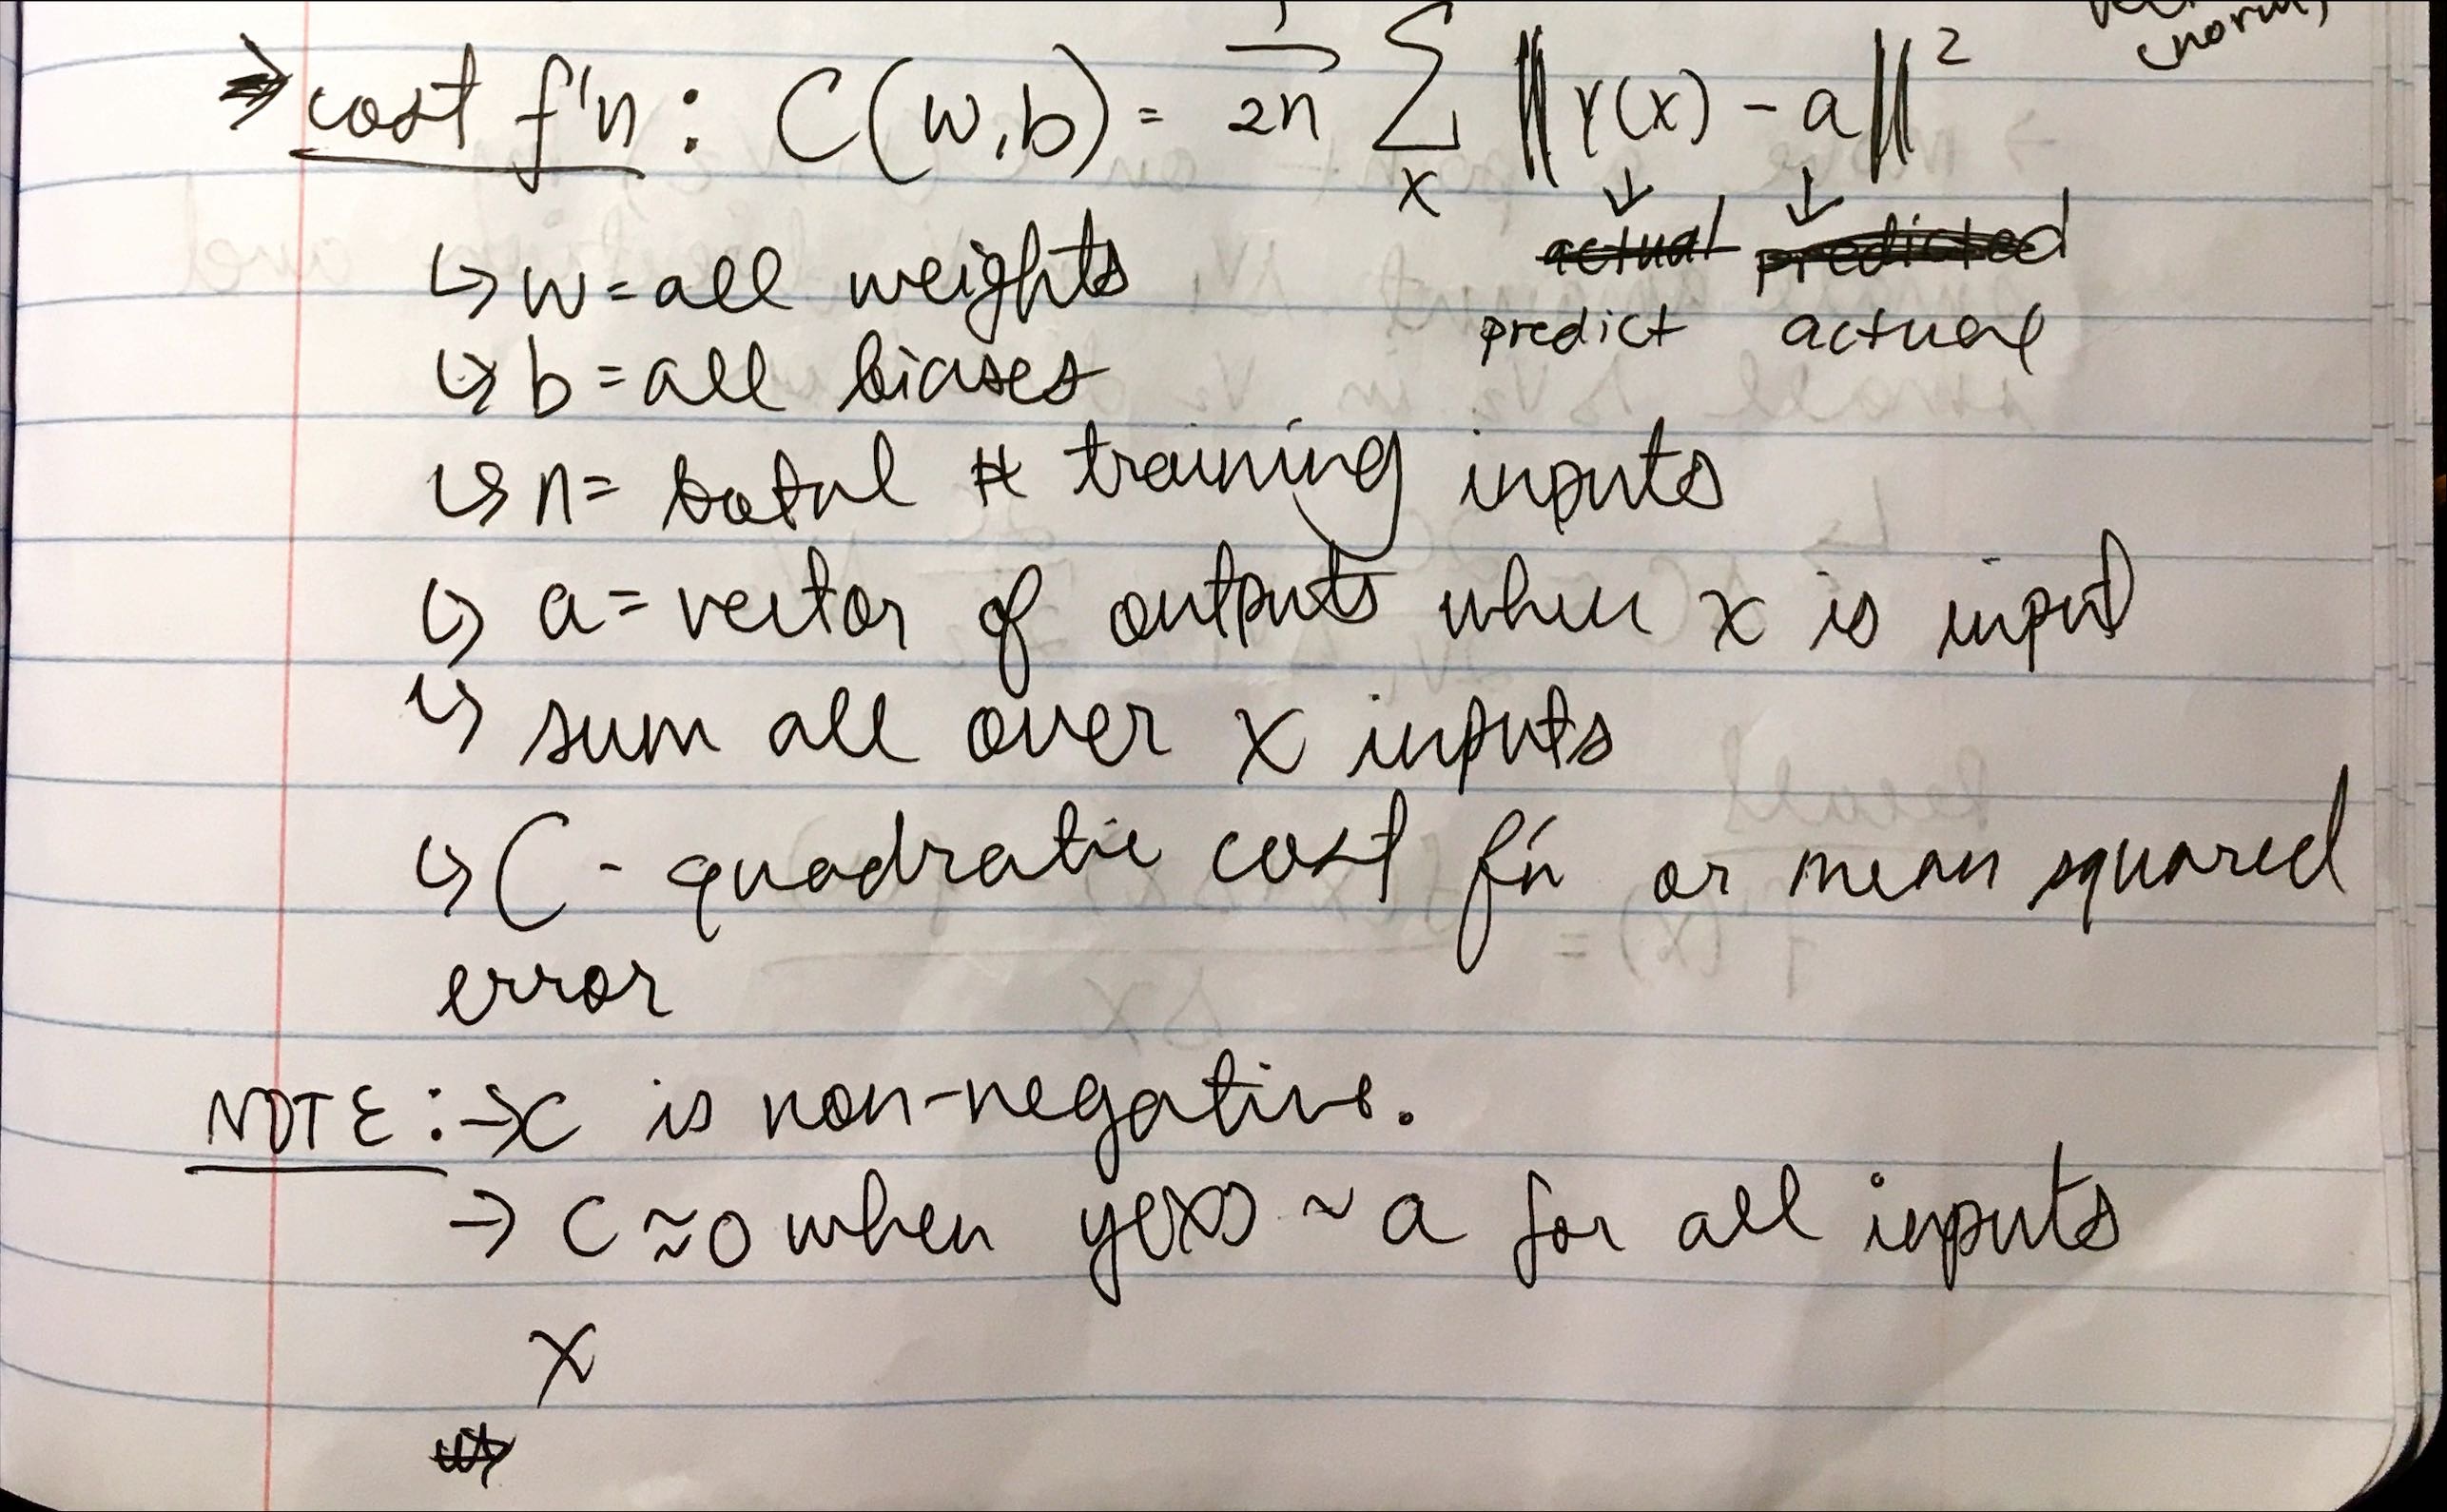 norm)
⇒ cost f'n : C(w,b) = 1/2n Σx ‖Y(x) - a‖²
↓ ↓
actual predicted
predict actual
↳ w = all weights
↳ b = all biases
↳ n = total # training inputs
↳ a = vector of outputs when x is input
↳ sum all over x inputs
↳ C - quadratic cost f'n or mean squared
error
NOTE : → C is non-negative.
→ C ≈ 0 when y(x) ~ a for all inputs
x